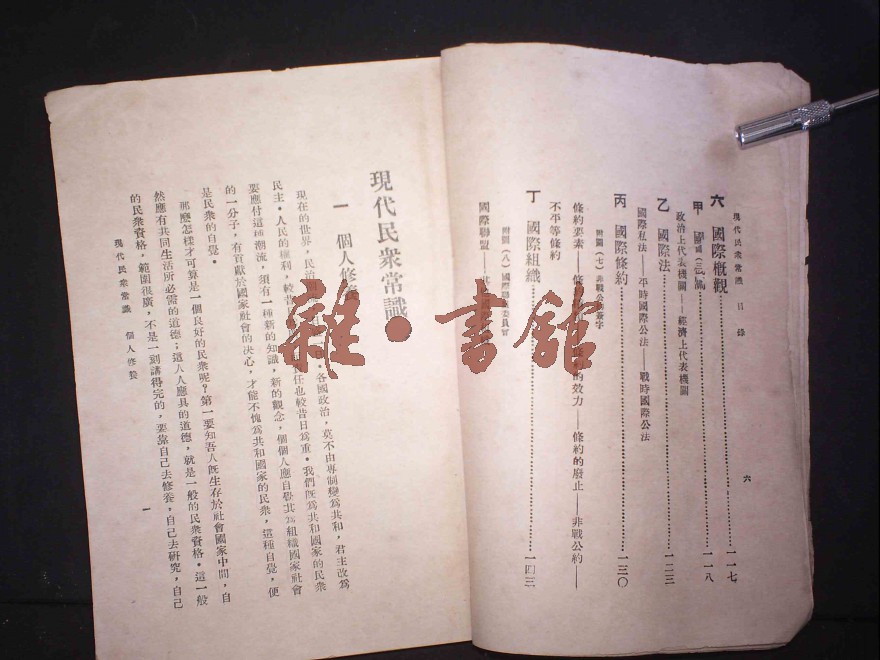 現代民衆常識 目錄
六
六 國際槪觀……一一七
甲 ……一一八
政治上代表機關——經濟上代表機關
乙 國際法……一二三
國際私法——平時國際公法——戰時國際公法
丙 國際條約……一三〇
附圖(七)非戰公約簽字
條約要素——條約的效力——條約的廢止——非戰公約——
不平等條約
丁 國際組織……一四三
附圖(八)國際聯盟委員官
國際聯盟
現代民衆常識
一 個人修養
現在的世界,民治各國政治,莫不由專制變爲共和,君主改爲
民主。人民的權利,較昔任也較昔日爲重。我們旣爲共和國家的民衆
要應付這種潮流,須有一種新的知識,新的觀念,個個人應自覺其爲組織國家社會
的一分子,有貢獻於國家社會的決心,才能不愧爲共和國家的民衆,這種自覺,便
是民衆的自覺。
那麼怎樣才可算是一個良好的民衆呢?第一要知吾人旣生存於社會國家中間,自
然應有共同生活所必需的道德;這八人應具的道德,就是一般的民衆資格。這一般
的民衆資格,範圍很廣,不是一刻講得完的,要靠自己去修養,自己去研究,自己
現代民衆常識 個人修養
一
雜·書館